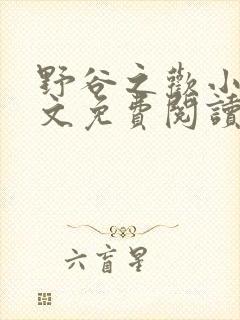 野谷之歡小
文免費閱讀
六盲星